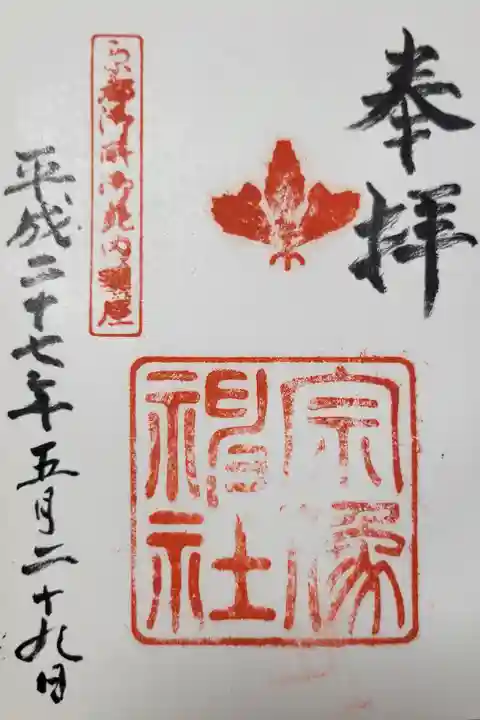 奉拝
宗像
神社
京都御所御苑内鎮座
平成二十七年五月二十九日